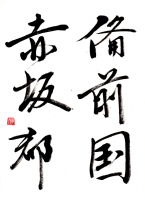 備前国
赤坂郡